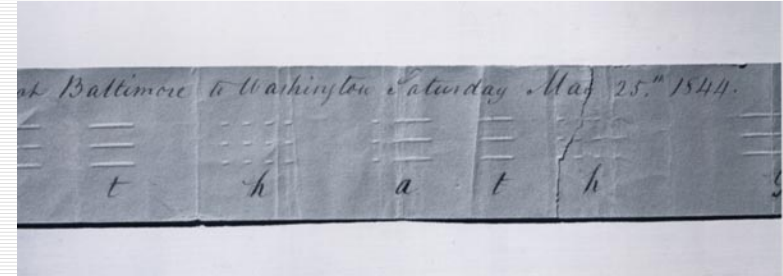 at Baltimore to Washington Saturday May 25.th 1844.
t h a t h